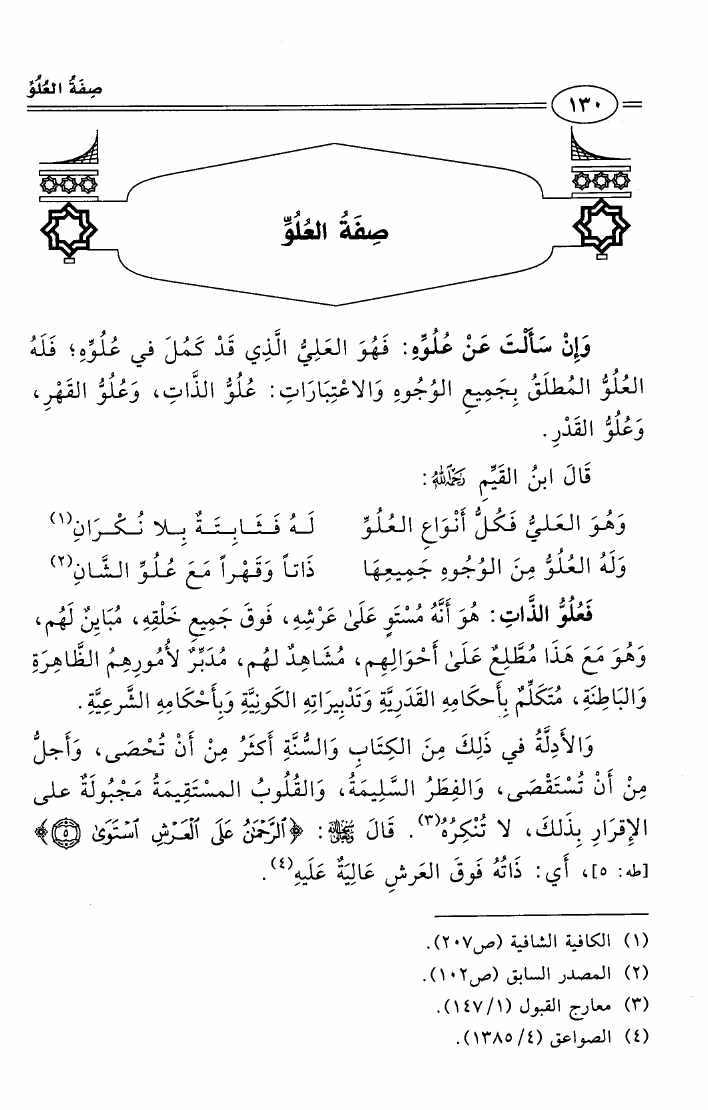 صِفَةُ العُلُوِّ
١٣٠
صِفَةُ العُلُوِّ
وَإِنْ سَأَلْتَ عَنْ عُلُوِّهِ: فَهُوَ العَلِيُّ الَّذِي قَدْ كَمُلَ في عُلُوِّهِ؛ فَلَهُ
العُلُوُّ المُطلَقُ بِجَمِيعِ الوُجُوهِ وَالاعْتِبَارَاتِ: عُلُوُّ الذَّاتِ، وَعُلُوُّ القَهْرِ،
وَعُلُوُّ القَدْرِ.
قَالَ ابنُ القَيِّمِ رَحِمَهُ اللهُ:
وَهُوَ العَلـيُّ فَكُلُّ أَنْوَاعِ العُلُوِّ لَـهُ فَـثَـابِـتَـةٌ بِـلا نُـكْـرَانِ(١)
وَلَهُ العُلُوُّ مِنَ الوُجُوهِ جَمِيعِهَا ذَاتـاً وَقَهْـراً مَـعَ عُـلُـوِّ الـشَّـانِ(٢)
فَعُلُوُّ الذَّاتِ: هُوَ أَنَّهُ مُسْتَوٍ عَلَىٰ عَرْشِهِ، فَوقَ جَمِيعِ خَلْقِهِ، مُبَايِنٌ لَهُم،
وَهُوَ مَعَ هَذَا مُطَّلِعٌ عَلَىٰ أَحْوَالِهِم، مُشَاهِدٌ لهُم، مُدَبِّرٌ لأُمُورِهِمُ الظَّاهِرَةِ
وَالبَاطِنَةِ، مُتَكَلِّمٌ بِأَحكَامِهِ القَدَرِيَّةِ وَتَدْبِيرَاتِهِ الكَونِيَّةِ وَبِأَحْكَامِهِ الشَّرعِيَّةِ.
وَالأَدِلَّةُ في ذَلِكَ مِنَ الكِتَابِ وَالسُّنَّةِ أَكثَرُ مِنْ أَنْ تُحْصَى، وَأَجلُّ
مِنْ أَنْ تُسْتَقْصَى، وَالفِطَرُ السَّلِيمَةُ، وَالقُلُوبُ المسْتَقِيمَةُ مَجْبُولَةٌ على
الإِقرَارِ بِذَلكَ، لا تُنْكِرُهُ(٣). قَالَ ﷻ: ﴿ٱلرَّحْمَٰنُ عَلَى ٱلْعَرْشِ ٱسْتَوَىٰ ٥﴾
[طه: ٥]، أَي: ذَاتُهُ فَوقَ العَرشِ عَالِيَةٌ عَلَيهِ(٤).
(١) الكافية الشافية (ص٢٠٧).
(٢) المصدر السابق (ص١٠٢).
(٣) معارج القبول (١/١٤٧).
(٤) الصواعق (٤/١٣٨٥).